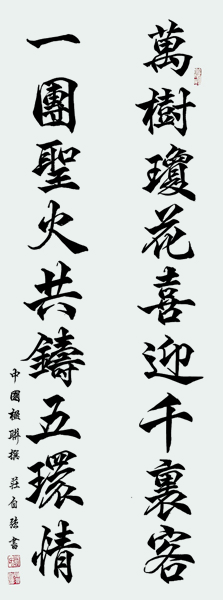 萬樹瓊花喜迎千裏客
一團聖火共鑄五環情
中國楹聯撰 莊自強書